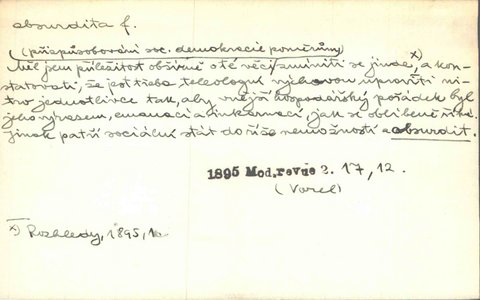 absurdita f.
(přizpůsobování soc. demokracie poměrům)
Měl jsem příležitost obšírně o té věci zmíniti se jinde x), a kon-
statovati, že jest třeba teleologní výchovou upraviti ni-
tro jednotlivce tak, aby vnější hospodářský pořádek byl
jeho výrazem, emanací a inkarnací, jak se oblíbeně říká.
jinak patří sociální stát do říše nemožností a absurdit.
1895 Mod. revue 2. 17, 12.
(Vorel)
x) Rozhledy, 1895, 12